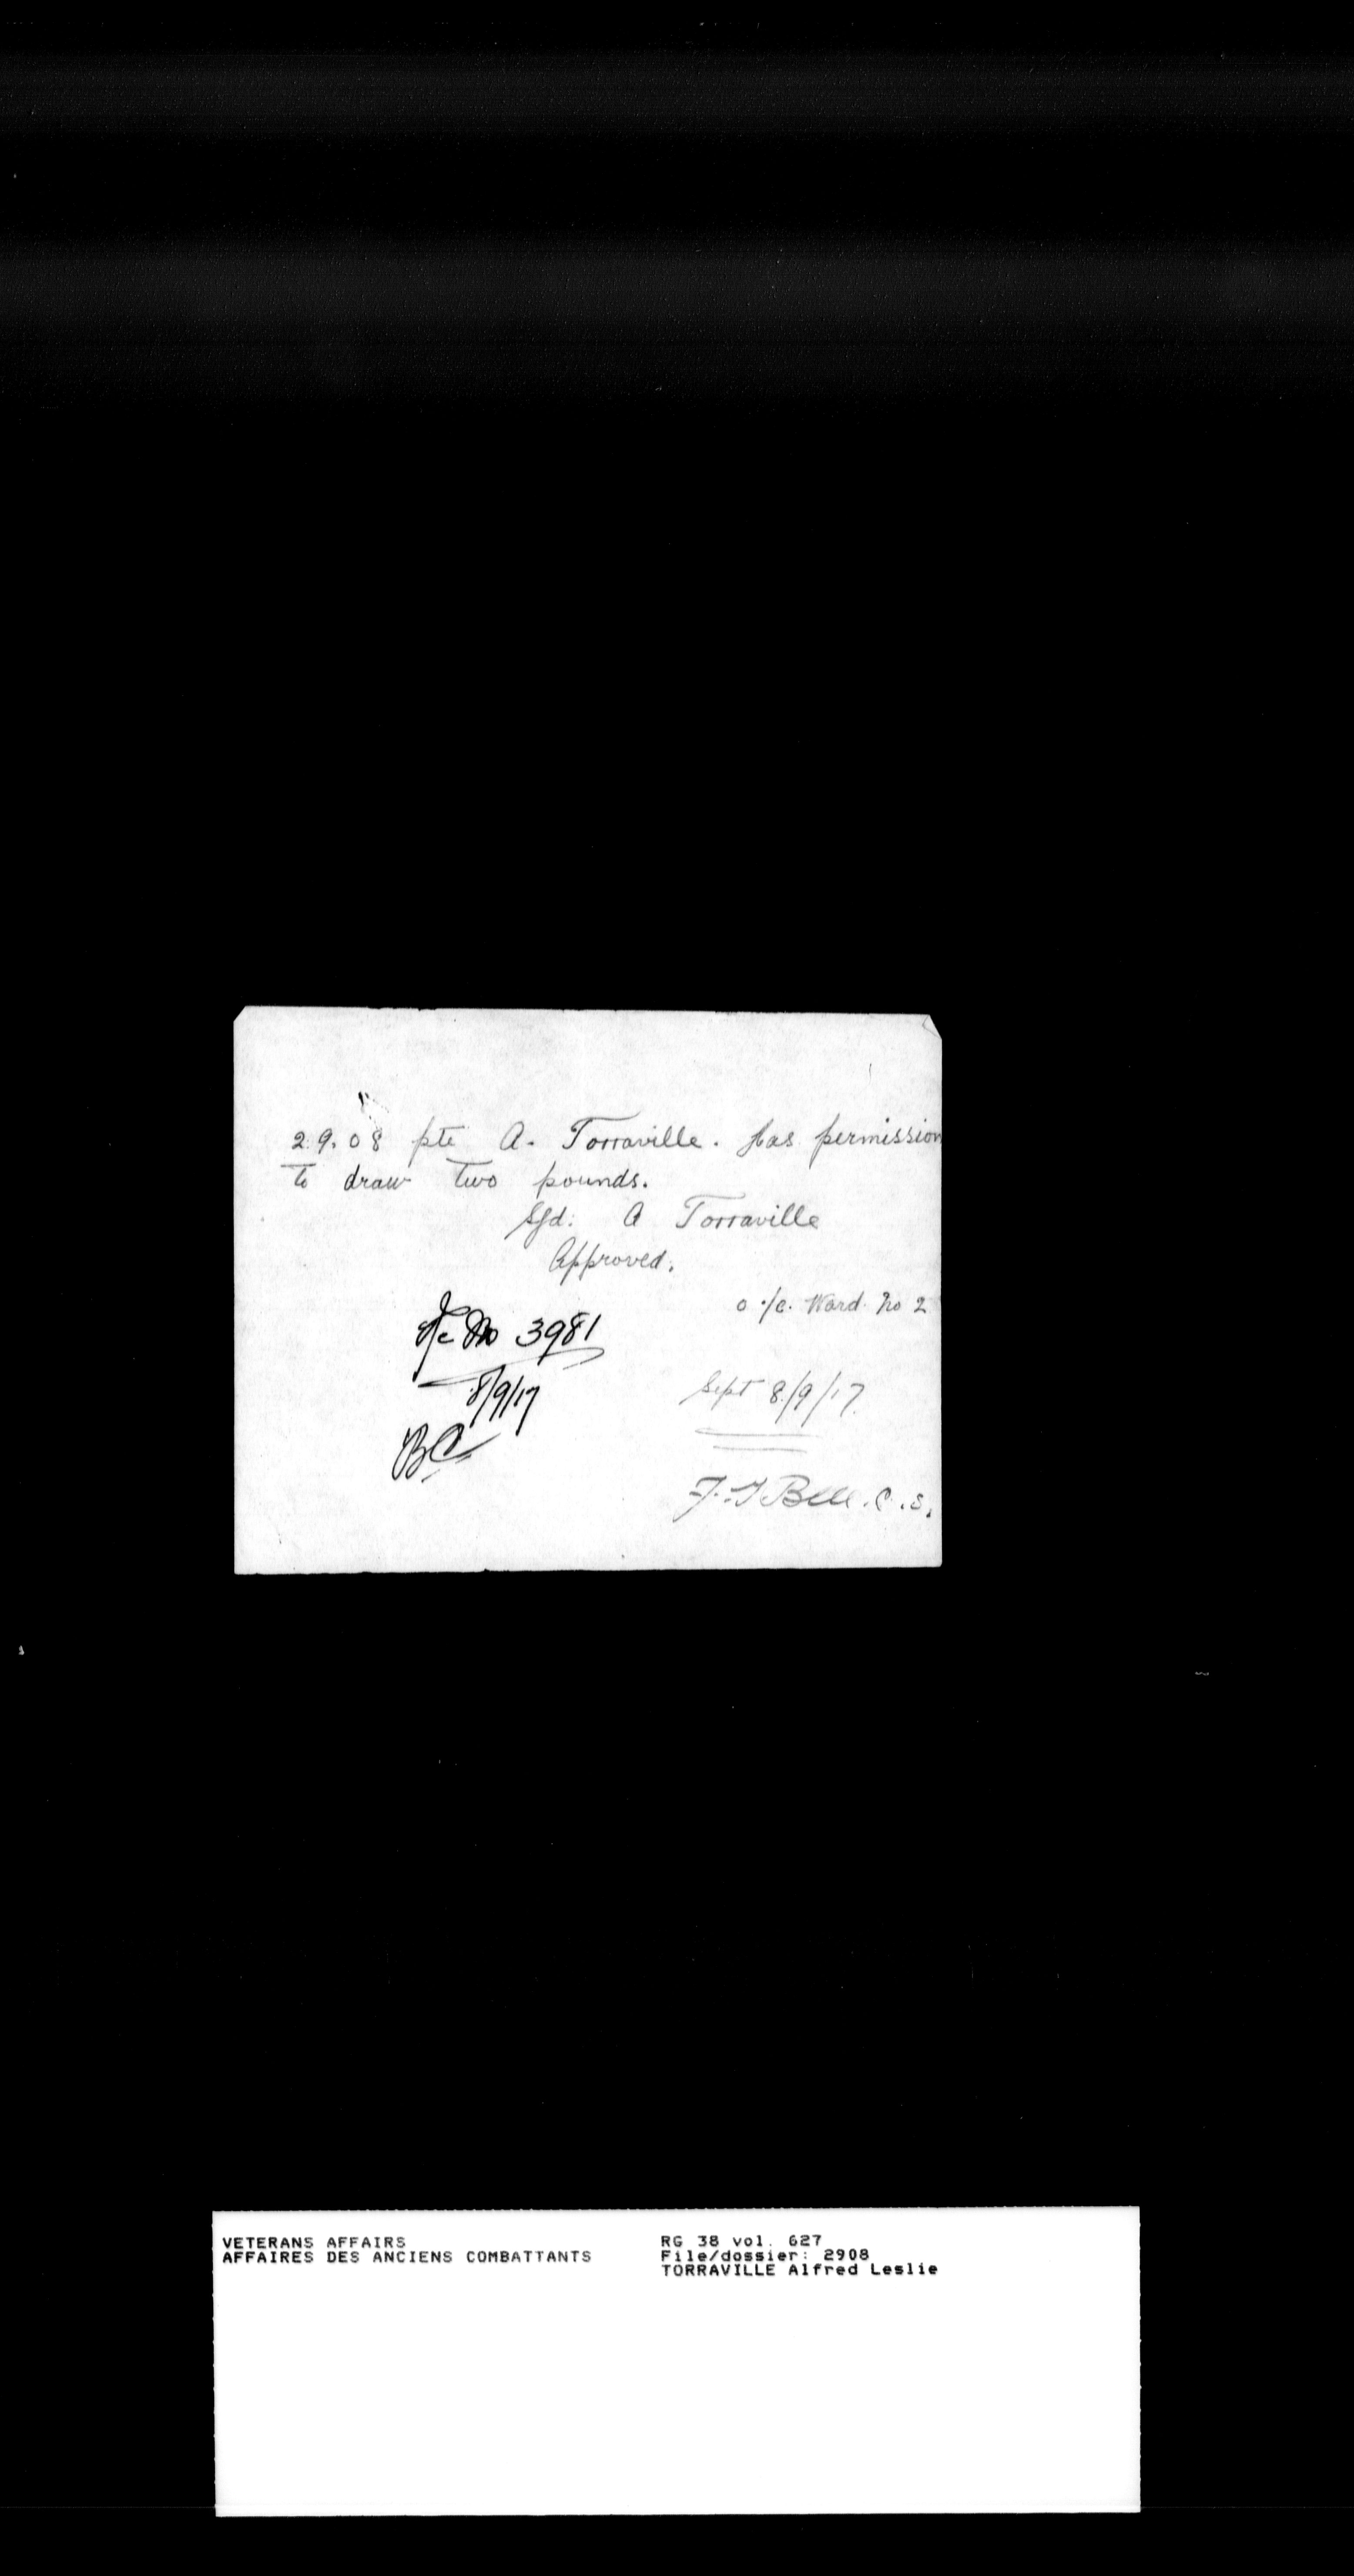 2908 pte A. Torraville. has permission
to draw two pounds.
Sgd: A Torraville
Approved.
o./c. Ward. No 2
No 3981
8/9/17
Sept 8/9/17.
BC
Bell. C.S.
VETERANS AFFAIRS
AFFAIRES DES ANCIENS COMBATTANTS
RG 38 vol. 627
File/dossier: 2908
TORRAVILLE Alfred Leslie